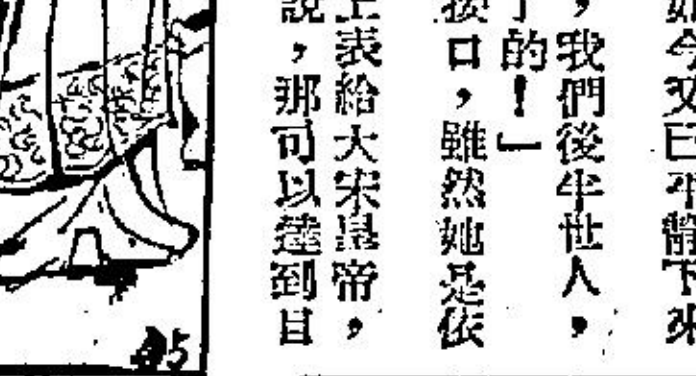 如今又已平靜下來
，我們後半世人，
了的！」
接口，雖然她是依
上表給大宋皇帝，
說，那可以達到目